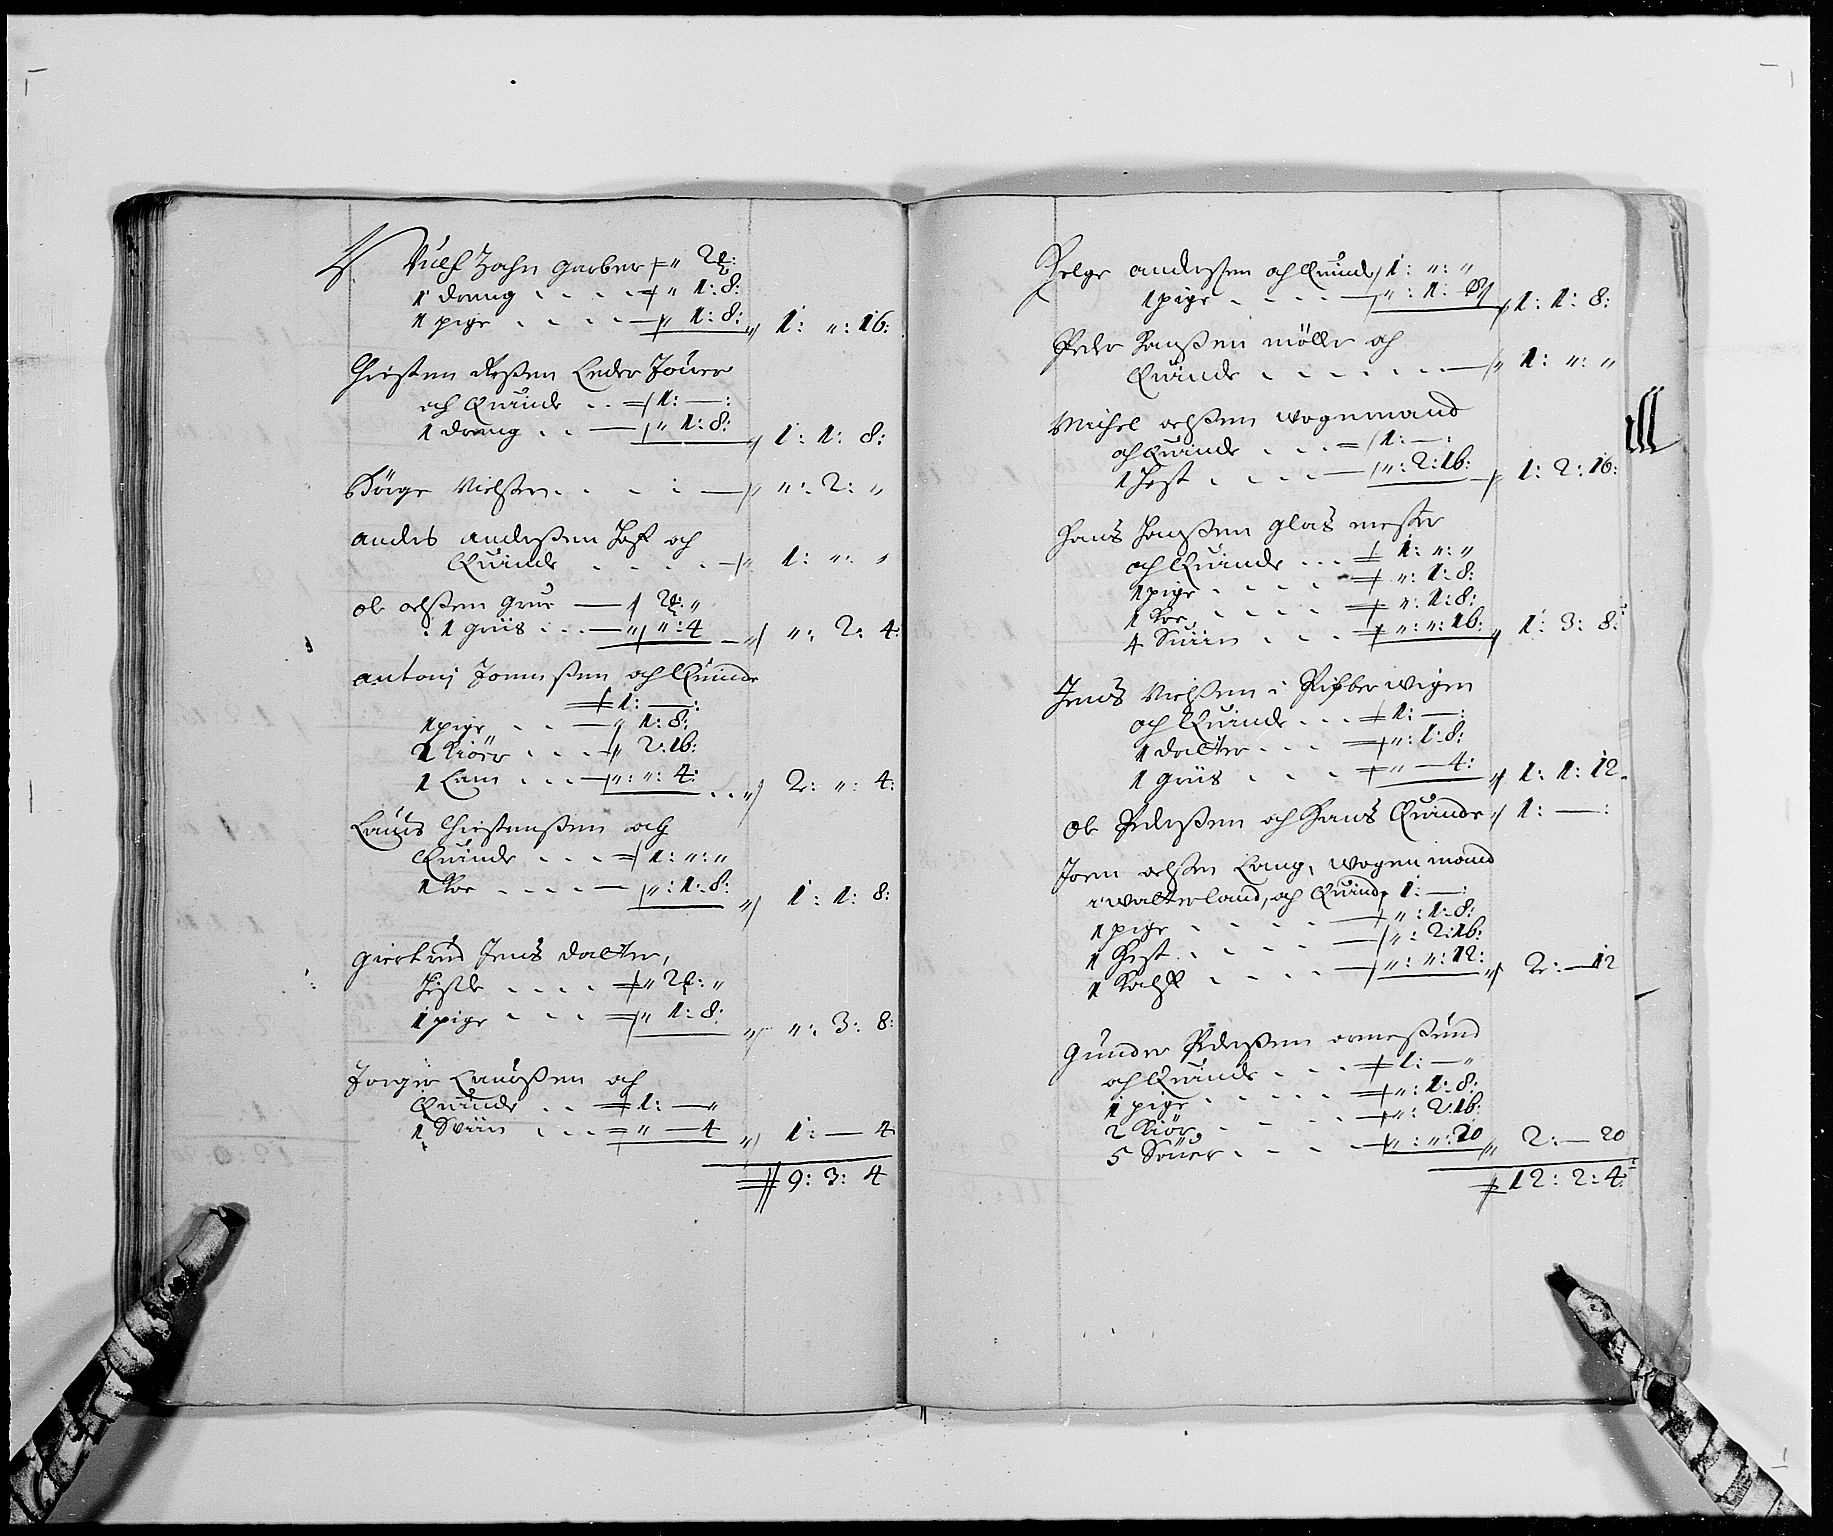 Vulf Zahn garber " 2:
1 dreng . . . . " 1: 8:
1 pige . . . . " 1: 8: 1: ": 16:
Christen Eeder Föuer
och Quinde . . 1: — :
1 dreng . . " 1: 8: 1: 1: 8:
Börge Nielsen . . . . ": 2: "
anders andersen och
Quinde . . . . 1: ": "
ole olsen grue — 2: "
1 griis . . . " ": 4 ": 2: 4:
antonj Jonnesen och Quinde
1: — :
1 pige . . — " 1: 8:
2 Kiöer . . . " 2: 16:
1 Lam . . . ": ": 4: . . 2: ": 4:
Lauris Christensen och
Quinde . . . 1: ": "
1 Koe . . . . — ": 1: 8: 1: 1: 8:
giertrud Jens datter,
. . . . " 2: "
1 pige . . . " 1: 8: ": 3: 8:
Jörgen Lauritzen och
Quinde . . 1: — "
1 Sviin . . . " — 4 1: — 4
9: 3: 4
Helge andersen och Quinde 1: ": "
1 pige . . . . — ": 1: 8 1: 1: 8:
Peder Hansen möller och
Quinde . . . . . . — 1: ": "
Michel olsen wognmand
och Quinde . . . 1: — :
1 Hest . . . . — ": 2: 16: 1: 2: 16:
Hans Hansen glas mester
och Quinde . . . 1: ": "
1 pige . . . . ": 1: 8:
1 Koe . . . . ": 1: 8:
4 Sviin . . . ": ": 16: 1: 3: 8:
Jens Nielsen i Pipber wigen
och Quinde . . . 1: — :
1 datter . . . ": 1: 8:
1 griis . . . " — 4: 1: 1: 12.
Ole Pedersen och Hans Quinde 1: — :
Joen olsen Lang, wogenmand
i walterland, och Quinde 1: — :
1 pige . . . . — ": 1: 8:
1 Hest . . . . — ": 2: 16:
1 Kalff . . . . — ": ": 12: 2: — 12
gunder Pedersen ormesund
och Quinde . . . 1: — "
1 pige . . . . . ": 1: 8:
2 Kiör . . . . — ": 2: 16:
5 Souer . . . . — ": ": 20 2: — 20
12: 2: 4: